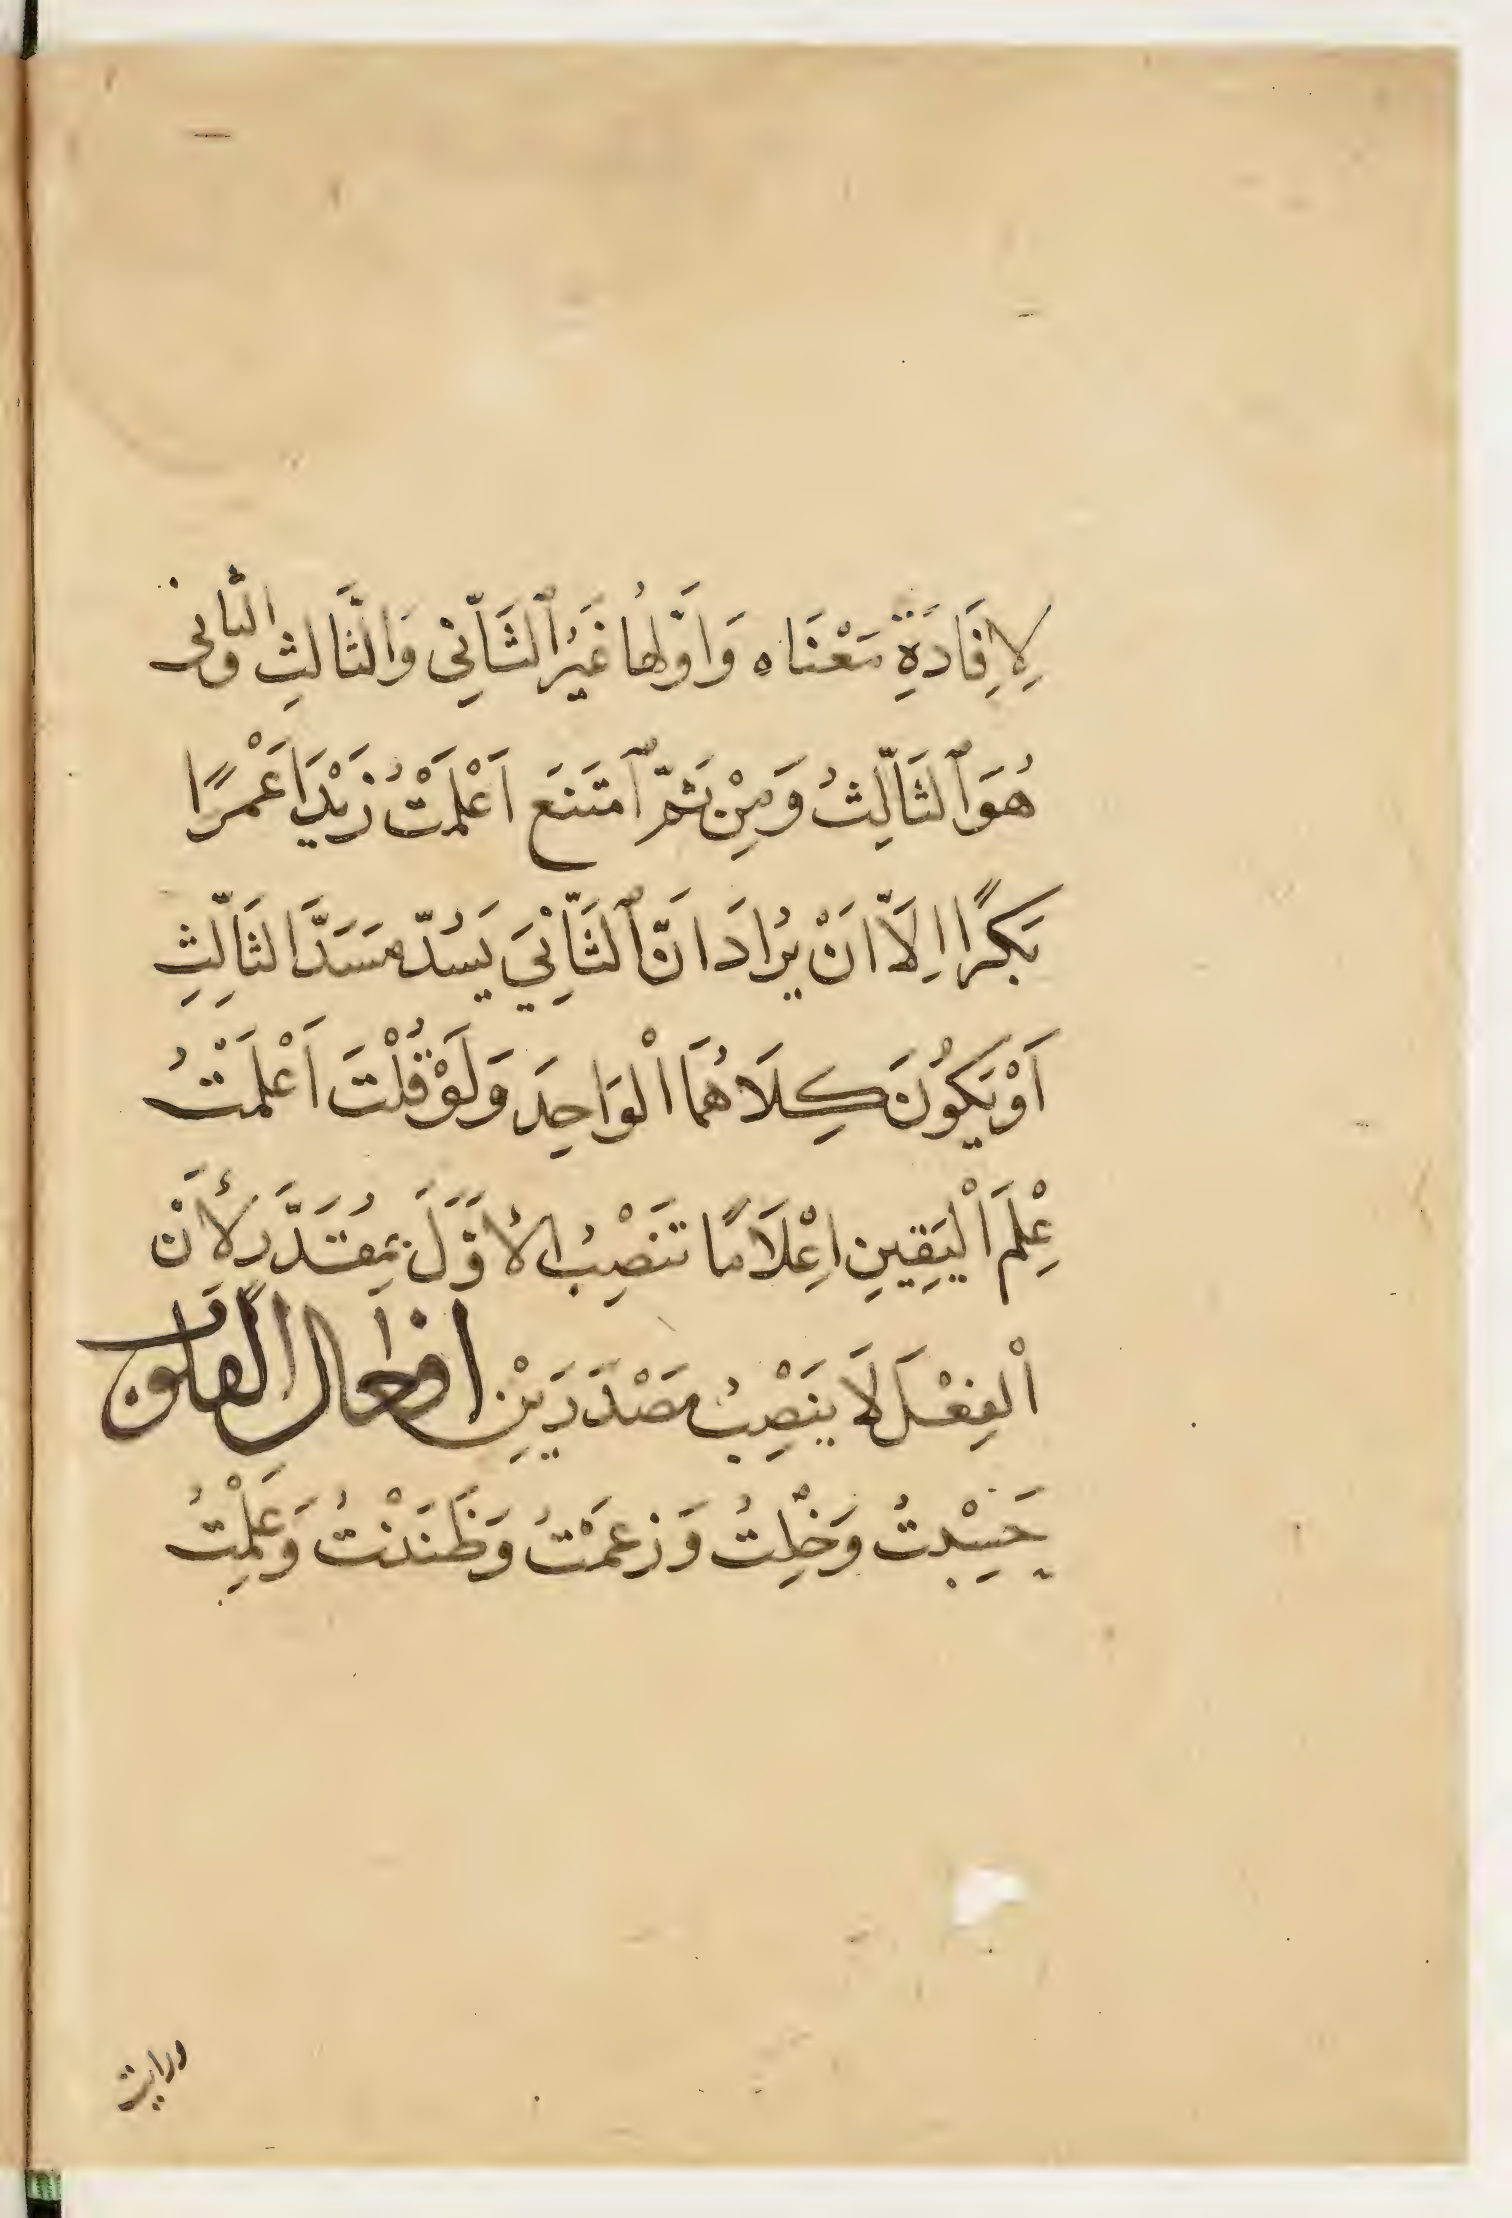 لِاِفَادَةِ مَعْنَاه وَاَوَّلهُا غَيْرُ ٱلثَّانِى وَالثَّالثِ وَالثانى
هُوَ ٱلثَّالِثُ وَمِنْ ثَمّ ٱمتَنَعَ اَعْلَمْتُ زَيْدًا عَمْرًا
بَكْرًا اِلَّا اَنْ يُرَادَ اَنّ ٱلثَّانِيَ يَسُدّ مَسَدَّ الثَّالِثِ
اَوْ يَكُونَ كِلَاهُمَا الْوَاحِدَ وَلَوْ قُلْتَ اَعْلَمْتُ
عِلْمَ الْيَقِينِ اِعْلَامًا تَنَصْبُ الْاَوَّلَ بِمُقَدَّرٍ لأَنْ
الْفِعْلَ لَا يَنَصِبُ مَصْدَرَيْنِ افعال القلوب
حَسِبْتُ وَخِلْتُ وَزعَمْتُ وَظَنَنْتُ وَعَلِمْتُ
ورايت